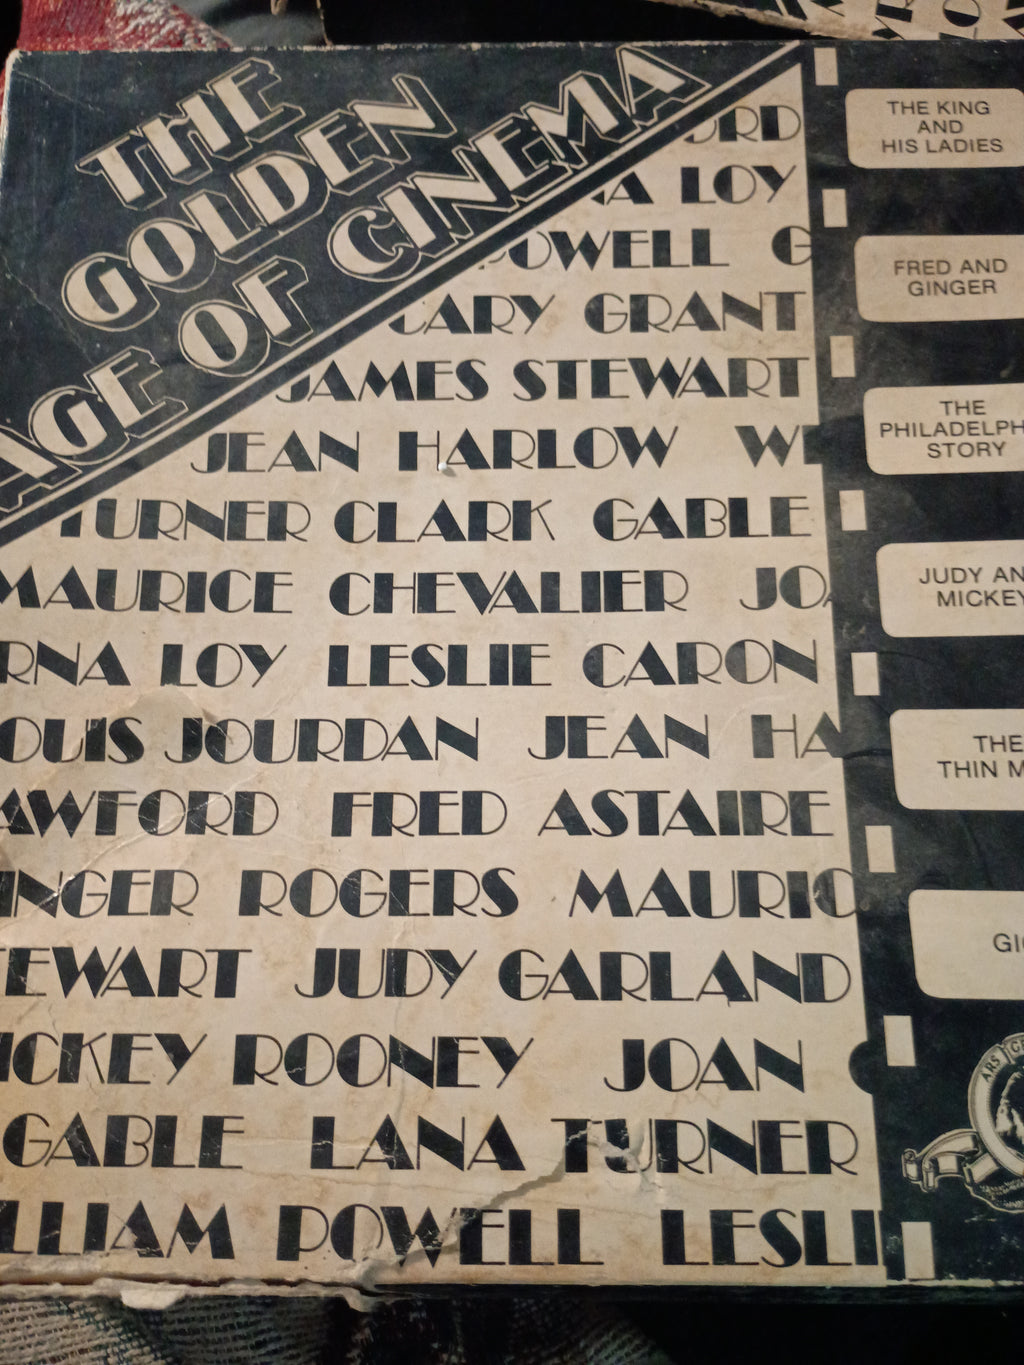 THE
GOLDEN
AGE OF CINEMA
RD
A LOY
OWELL G
CARY GRANT
JAMES STEWART
JEAN HARLOW W
TURNER CLARK GABLE
MAURICE CHEVALIER JO
RNA LOY LESLIE CARON
OUIS JOURDAN JEAN HA
AWFORD FRED ASTAIRE
INGER ROGERS MAURIC
TEWART JUDY GARLAND
ICKEY ROONEY JOAN C
GABLE LANA TURNER
LLIAM POWELL LESLI
THE KING
AND
HIS LADIES
FRED AND
GINGER
THE
PHILADELPH
STORY
JUDY AN
MICKEY
THE
THIN M
GIG
ARS